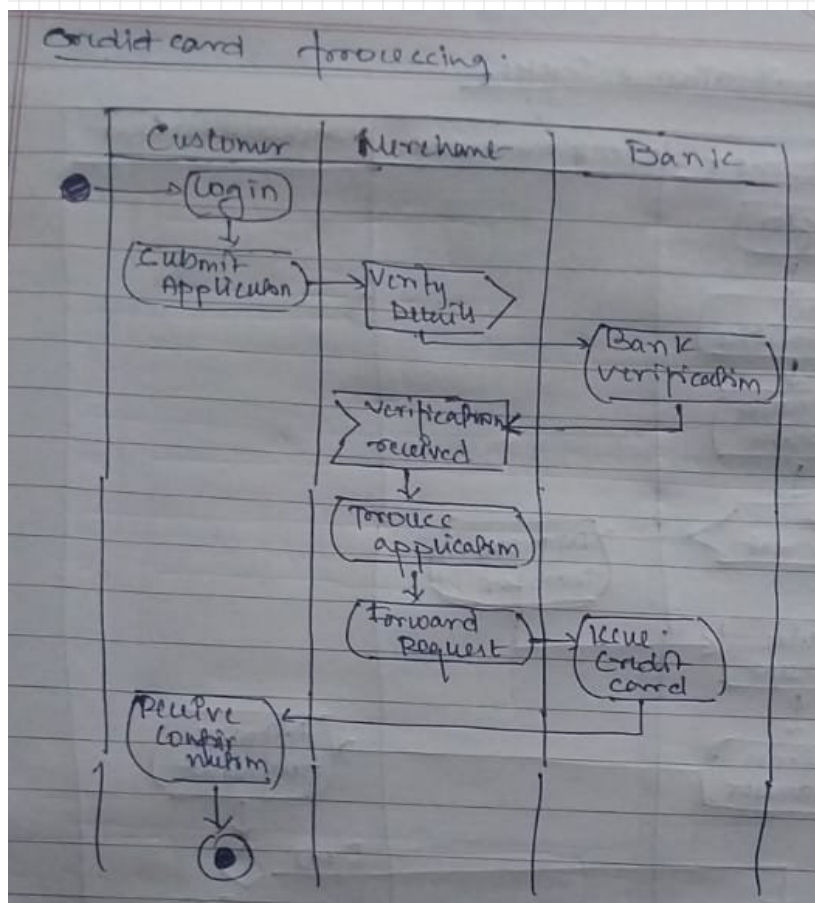 Credit card processing.
Customer
Merchant
Bank
Login
Submit
Application
Verify
Details
Bank
verification
Verification
received
Process
application
Forward
Request
Issue
Credit
card
Receive
Confir
mation